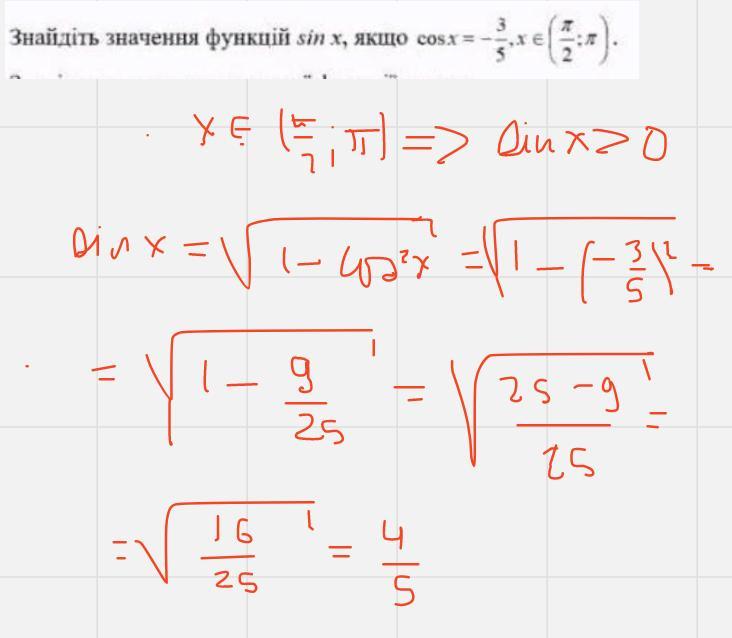 Знайдіть значення функцій sin x, якщо cosx = -3/5, x ∈ (π/2; π).
x ∈ (π/2; π) => sin x > 0
sin x = √(1 - cos²x) = √(1 - (-3/5)²) =
= √(1 - 9/25) = √((25 - 9)/25) =
= √(16/25) = 4/5